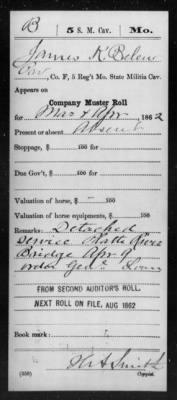 B 5 S. M. Cav. Mo.
James K Belew
Pvt, Co. F, 5 Reg't Mo. State Militia Cav.
Appears on
Company Muster Roll
for Mar & Apr, 1862
Present or absent Absent
Stoppage, $ 100 for
Due Gov't, $ 100 for
Valuation of horse, $ 100
Valuation of horse equipments, $ 100
Remarks: Detached
service Platte River
Bridge Apr 9
order Gen'l Loan
FROM SECOND AUDITOR'S ROLL.
NEXT ROLL ON FILE, AUG 1862
Book mark:
H A Smith
(358) Copyist.